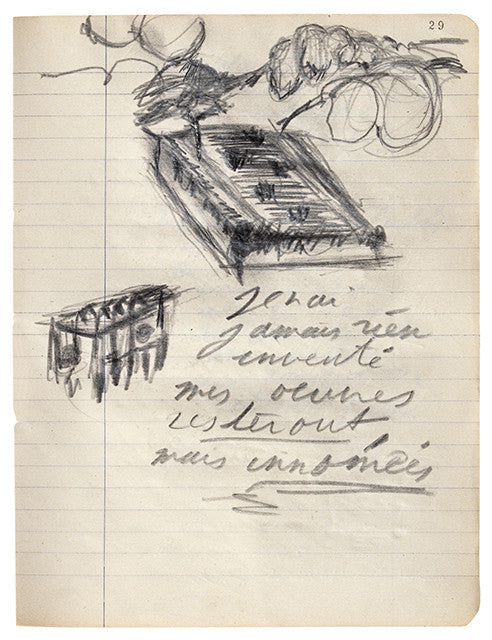 29
je n'ai
jamais rien
inventé
mes oeuvres
resteront
mais innomées